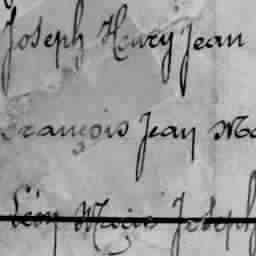 Joseph Henry Jean
François Jean Ma
Léon Marie Joseph